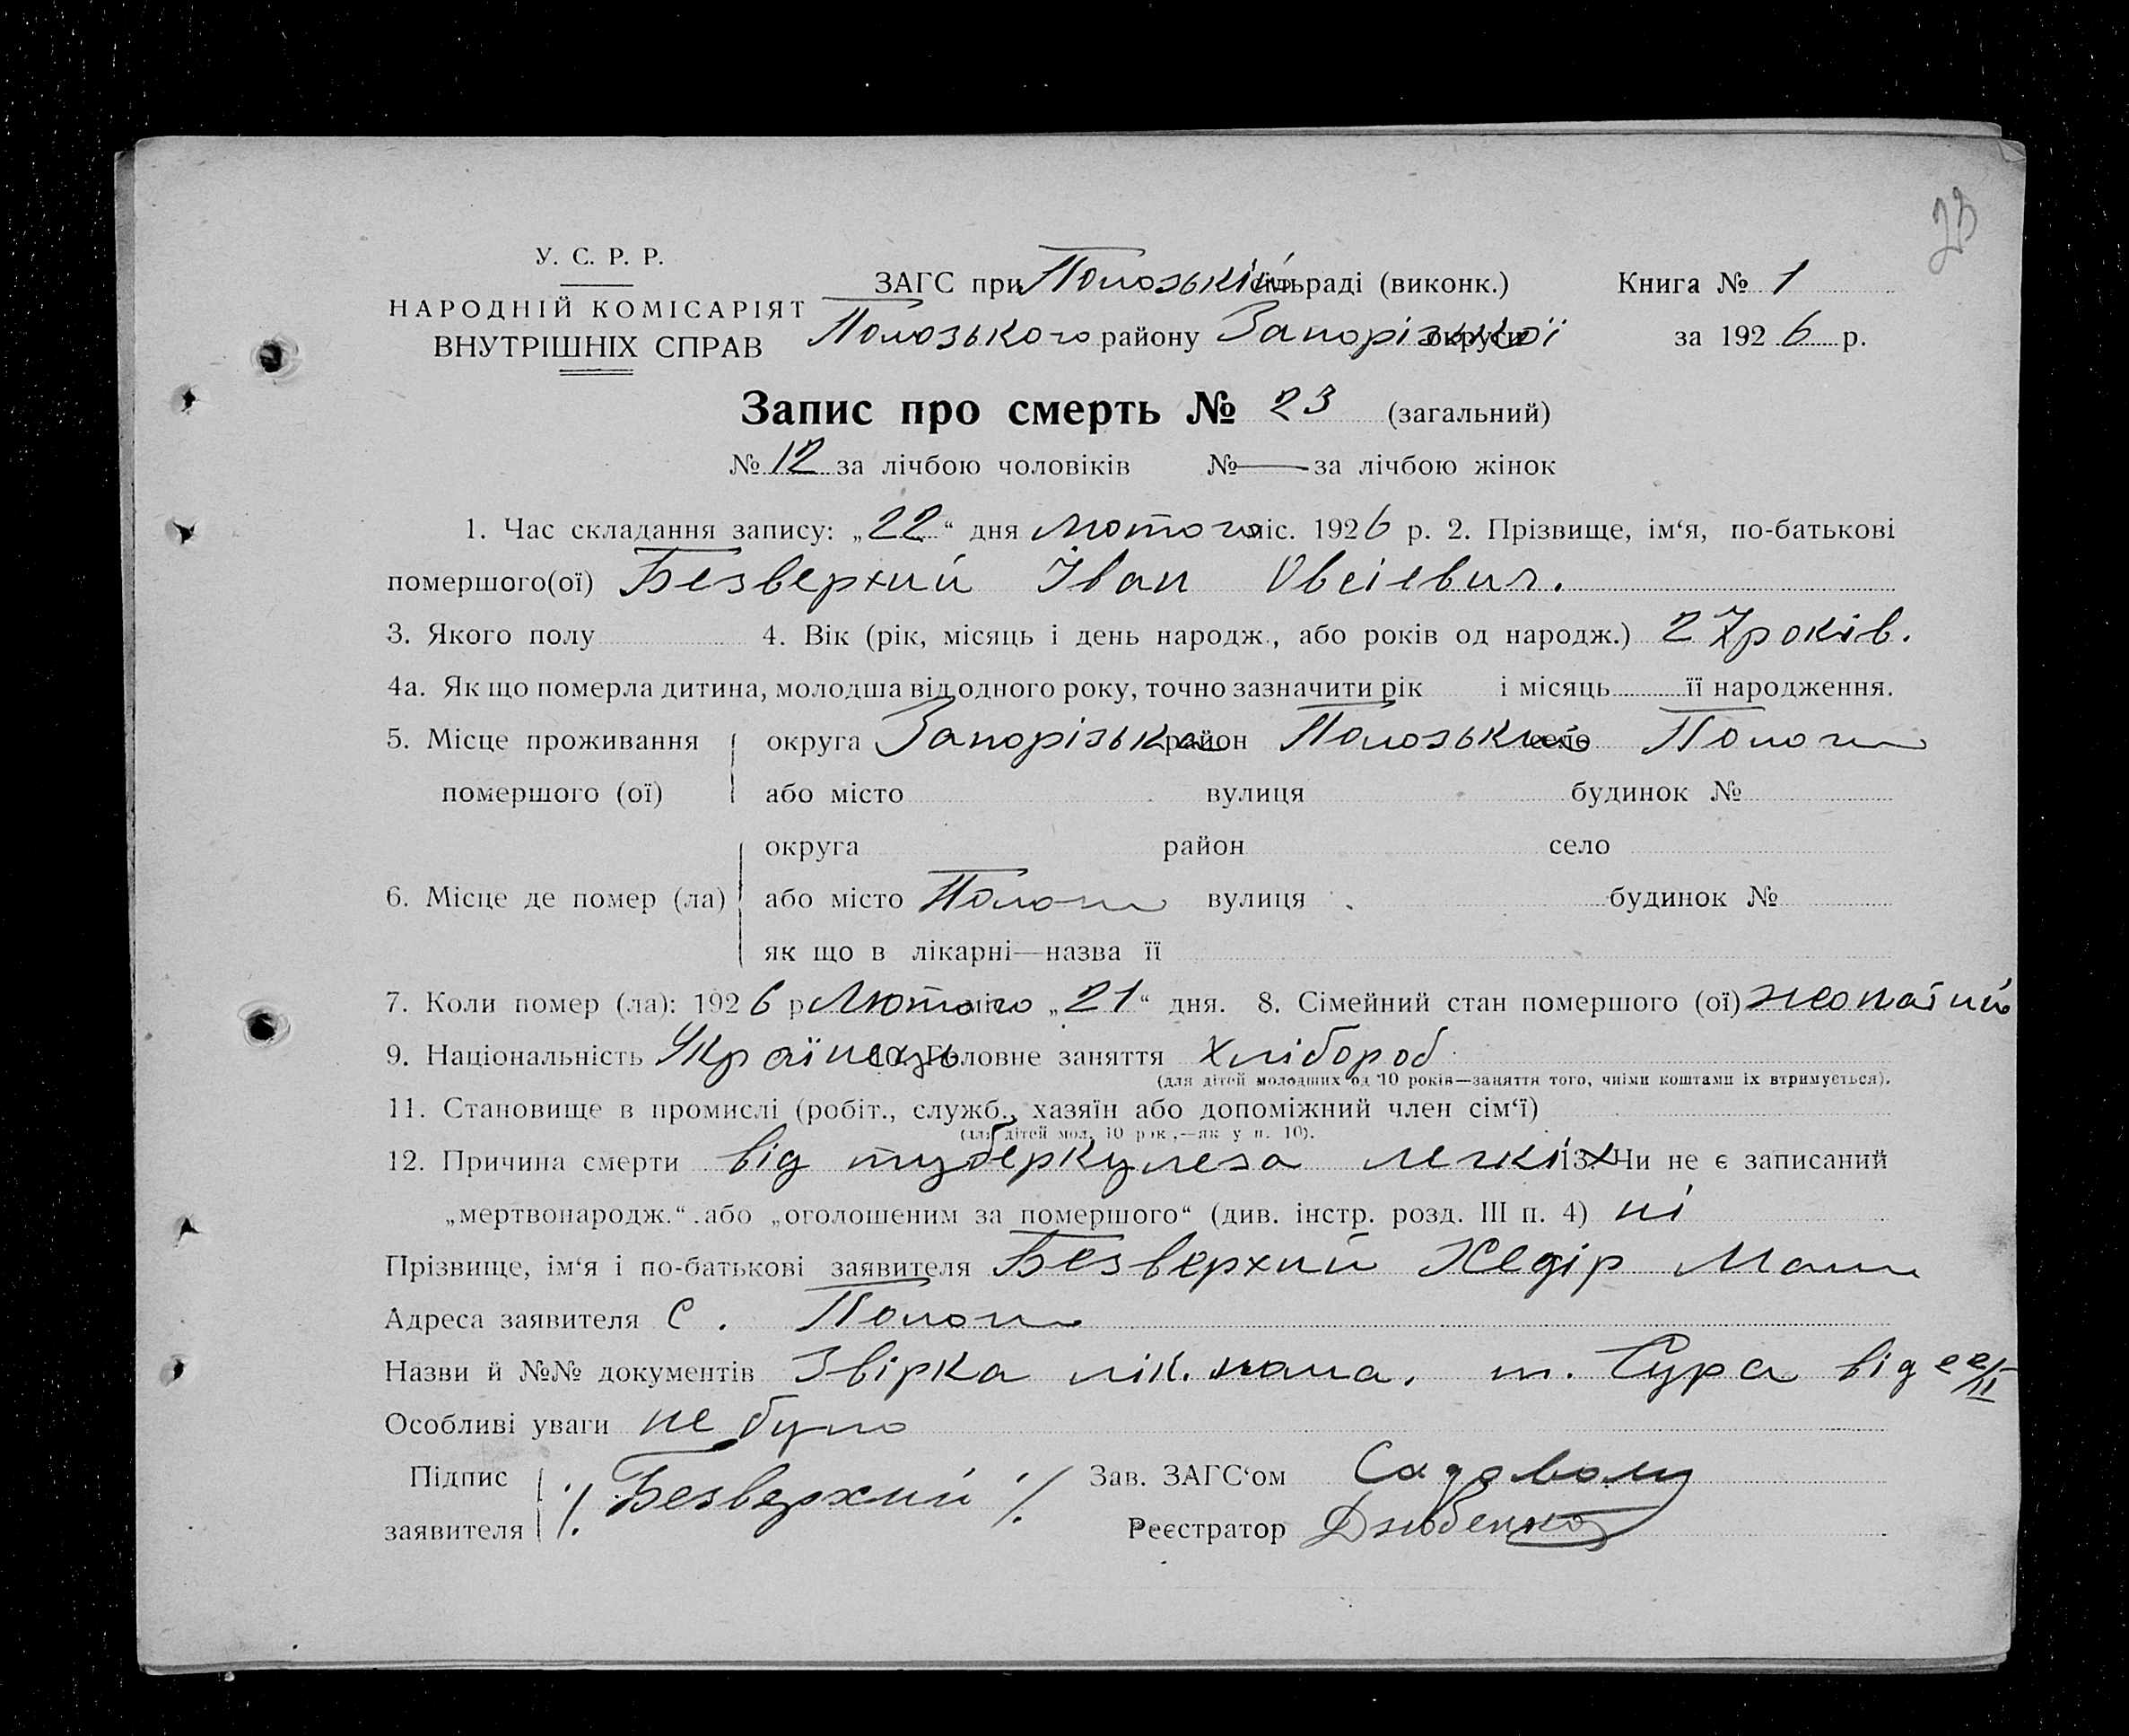 23
У. С. Р. Р.
НАРОДНІЙ КОМІСАРІЯТ
ВНУТРІШНІХ СПРАВ
ЗАГС при Пологській сільраді (виконк.)
Пологського району Запорізької округи
Книга № 1
за 1926 р.
Запис про смерть № 23 (загальний)
№ 12 за лічбою чоловіків № — за лічбою жінок
1. Час складання запису: „22“ дня Лютого міс. 1926 р. 2. Прізвище, ім‘я, по-батькові
помершого(ої) Безверхий Іван Овсієвич.
3. Якого полу 4. Вік (рік, місяць і день народж., або років од народж.) 27 років.
4а. Як що померла дитина, молодша від одного року, точно зазначити рік і місяць її народження.
5. Місце проживання помершого (ої) округа Запорізька район Пологський село Пологи
або місто вулиця будинок №
6. Місце де помер (ла) округа район село
або місто Пологи вулиця будинок №
як що в лікарні—назва її
7. Коли помер (ла): 1926 р. Лютого міс. „21“ дня. 8. Сімейний стан помершого (ої)
9. Національність Українець 10. Головне заняття Хлібороб
(для дітей молодших од 10 років—заняття того, чиїми коштами їх втримується).
11. Становище в промислі (робіт., служб., хазяїн або допоміжний член сім‘ї)
(для дітей мол. 10 рок.,—як у п. 10).
12. Причина смерти від туберкулеза легких 13. Чи не є записаний
„мертвонародж.“ або „оголошеним за помершого“ (див. інстр. розд. III п. 4) ні
Прізвище, ім‘я і по-батькові заявителя Безверхий Хедір
Адреса заявителя С. Пологи
Назви й №№ документів лік. т. від 22/II
Особливі уваги не було
Підпис заявителя ./. Безверхий ./.
Зав. ЗАГС‘ом
Реєстратор